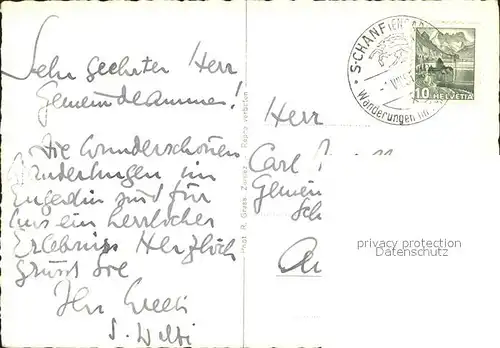 Sehr geehrter Herr
Gemeindeammann!
Die wunderschönen
Wanderungen im
Engadin sind für
uns ein herrliches
Erlebnis Herzlich
grüsst Sie
Ihr
Phot. R. Grass, Zernez - Repro verboten
S-CHANF (ENGAD
Wanderungen im
10 HELVETIA
Herr
Carl
Gemein
Sch
privacy protection
Datenschutz